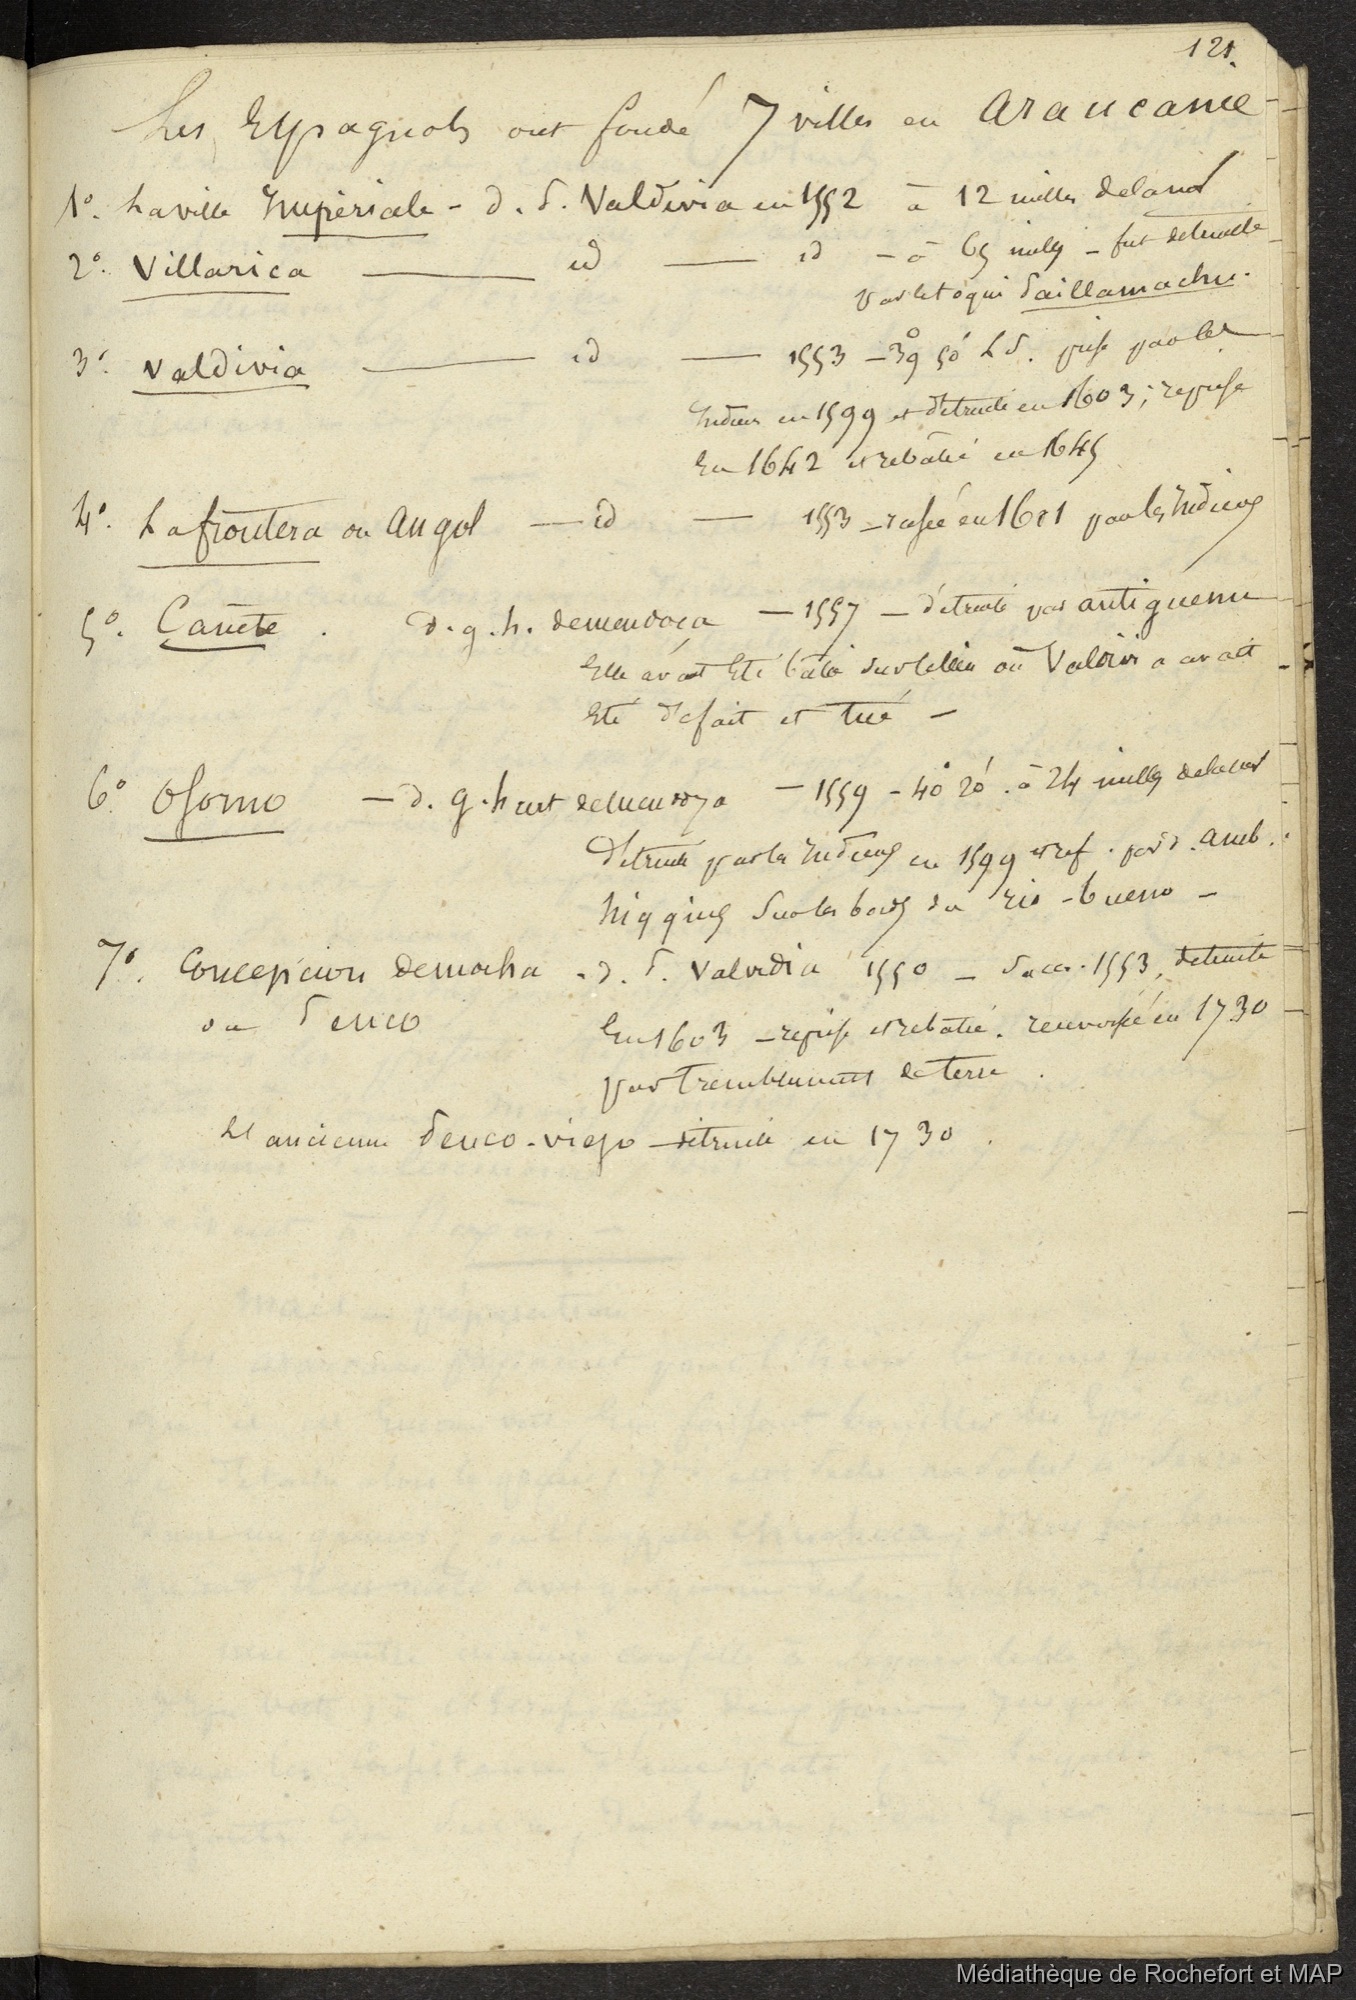 121.
Les Espagnols ont fondé 7 villes en araucanie
1°. La ville Impériale - d. P. Valdivia en 1552 à 12 milles de la mer
2°. Villarica — id — id - à 65 milles - fut détruite
par le toqui Paillamachu.
3°. Valdivia — id — 1553 - 39° 50' L S. prise par les
Indiens en 1599 et détruite en 1603 ; reprise
en 1642 et rebatie en 1645
4°. La frontera ou angol — id — 1553 - rasée en 1601 par les Indiens
5°. Canete . d. g. h. de mendoça — 1557 - détruite par antiguenu
Elle avait été batie sur le lieu où Valdivia avait
été défait et tué -
6°. Osorno — d. g. hurt de mendoza — 1559 - 40° 20' . à 24 milles de la mer
détruite par les Indiens en 1599 et ref. par d. amb.
higgins sur les bords du rio-bueno -
7°. Concepcion de mocha - d. P. Valvidia 1550 - sacc. 1553, détruite
ou Penco
en 1603 - reprise et rebatie. renversée en 1730
par tremblement de terre .
L'ancienne Penco-viejo - détruite en 1730 .
Médiathèque de Rochefort et MAP